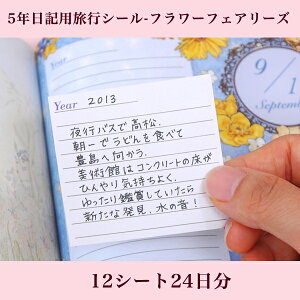 5年日記用旅行シール-フラワーフェアリーズ
Year 2013
夜行バスで高松.
朝一でうどんを食べて
豊島へ向かう.
美術館はコンクリートの床が
ひんやり気持ちよく.
ゆったり鑑賞していたら
新たな発見、水の音!
Year
9/1
Septem
12シート24日分